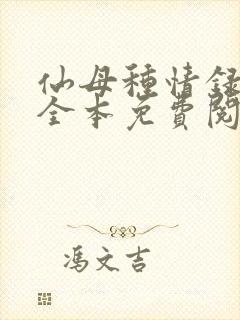 仙母種情録
全本免費閱
馮文吉